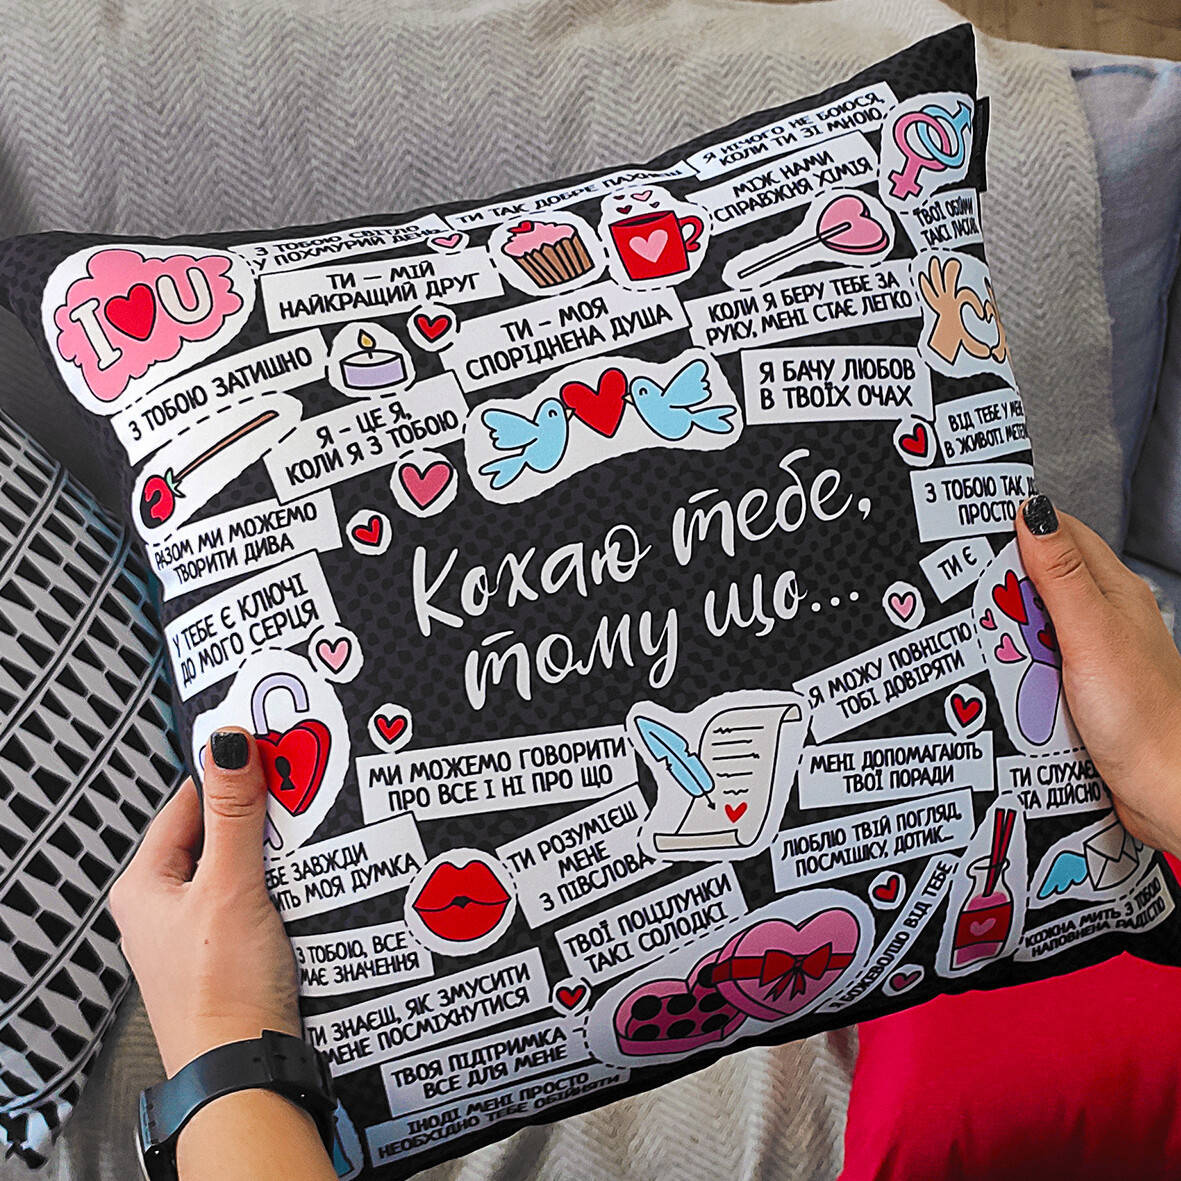 Я НІЧОГО НЕ БОЮСЯ,
КОЛИ ТИ ЗІ МНОЮ
ТИ ТАК ДОБРЕ ПАХНЕШ
МІЖ НАМИ
СПРАВЖНЯ ХІМІЯ
З ТОБОЮ СВІТЛО
У ПОХМУРИЙ ДЕНЬ
ТВОЇ ОБІЙМИ
ТАКІ
I U
ТИ – МІЙ
НАЙКРАЩИЙ ДРУГ
ТИ – МОЯ
СПОРІДНЕНА ДУША
КОЛИ Я БЕРУ ТЕБЕ ЗА
РУКУ, МЕНІ СТАЄ ЛЕГКО
З ТОБОЮ ЗАТИШНО
Я – ЦЕ Я,
КОЛИ Я З ТОБОЮ
Я БАЧУ ЛЮБОВ
В ТВОЇХ ОЧАХ
ВІД ТЕБЕ У МЕНЕ
В ЖИВОТІ
З ТОБОЮ ТАК
ПРОСТО
РАЗОМ МИ МОЖЕМО
ТВОРИТИ ДИВА
Кохаю тебе,
тому що...
ТИ Є
У ТЕБЕ Є КЛЮЧІ
ДО МОГО СЕРЦЯ
Я МОЖУ ПОВНІСТЮ
ТОБІ ДОВІРЯТИ
МИ МОЖЕМО ГОВОРИТИ
ПРО ВСЕ І НІ ПРО ЩО
МЕНІ ДОПОМАГАЮТЬ
ТВОЇ ПОРАДИ
ТИ СЛУХАЄ
ТА ДІЙСНО
ТИ РОЗУМІЄШ
МЕНЕ
З ПІВСЛОВА
ЛЮБЛЮ ТВІЙ ПОГЛЯД,
ПОСМІШКУ, ДОТИК...
БЕ ЗАВЖДИ
ИТЬ МОЯ ДУМКА
ТВОЇ ПОЦІЛУНКИ
ТАКІ СОЛОДКІ
Я БОЖЕВОЛІЮ ВІД ТЕБЕ
КОЖНА МИТЬ З ТОБОЮ
НАПОВНЕНА РАДІСТЮ
З ТОБОЮ, ВСЕ
МАЄ ЗНАЧЕННЯ
ТИ ЗНАЄШ, ЯК ЗМУСИТИ
МЕНЕ ПОСМІХНУТИСЯ
ТВОЯ ПІДТРИМКА
ВСЕ ДЛЯ МЕНЕ
ІНОДІ МЕНІ ПРОСТО
НЕОБХІДНО ТЕБЕ ОБІЙНЯТИ